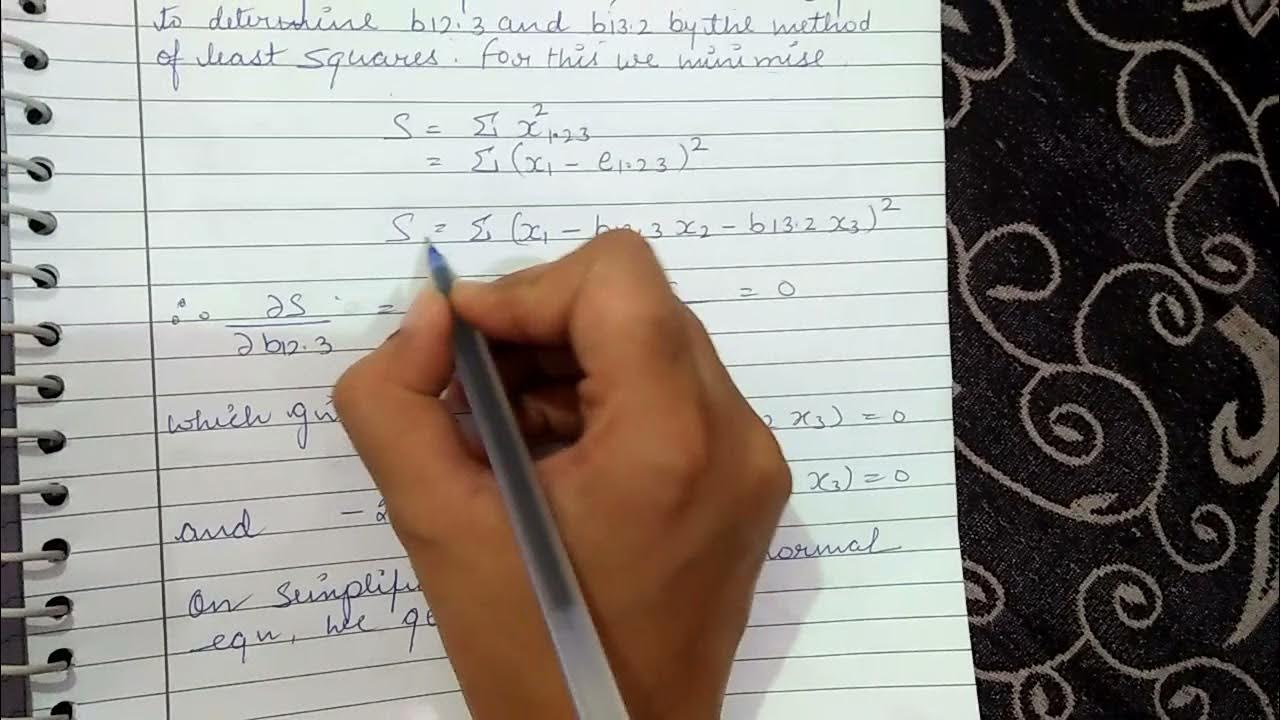 to determine b12.3 and b13.2 by the method
of least squares. For this we minimise
S = Σ x²1.23
= Σ (x1 - e1.23)²
S = Σ (x1 - b12.3 x2 - b13.2 x3)²
∴ ∂S/∂b12.3 = = 0
which x3) = 0
and - 2 x3) = 0
On
eqn, we